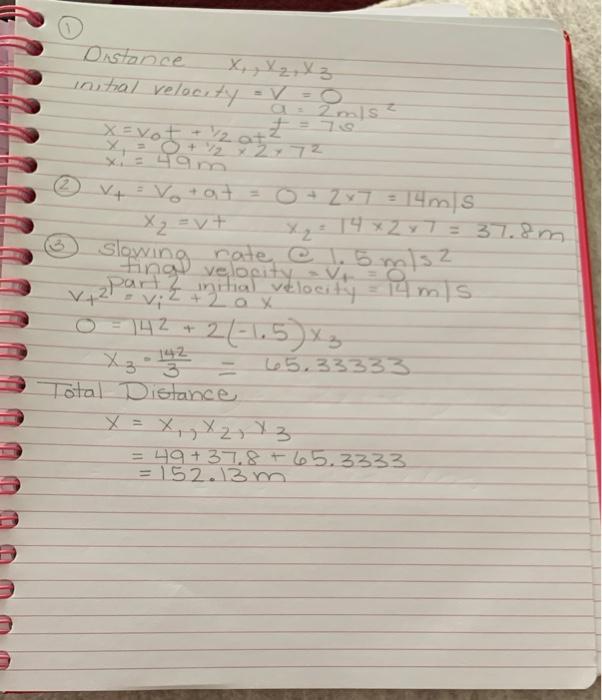 ①
Distance x₁, x₂, x₃
initial velocity = v = 0
a = 2m/s²
t = 7s
x = v₀t + ½ at²
x₁ = 0 + ½ × 2 × 7²
x₁ = 49m
② v₊ = v₀ + at = 0 + 2×7 = 14m/s
x₂ = vt x₂ = 14 × 2 × 7 = 37.8m
③ Slowing rate @ 1.5 m/s²
final velocity = v₊ = 0
part 2 initial velocity = 14m/s
v₊² = vᵢ² + 2 a x
0 = 14² + 2(-1.5) x₃
x₃ = 14²/3 = 65.33333
Total Distance
x = x₁, x₂, x₃
= 49 + 37.8 + 65.3333
= 152.13m